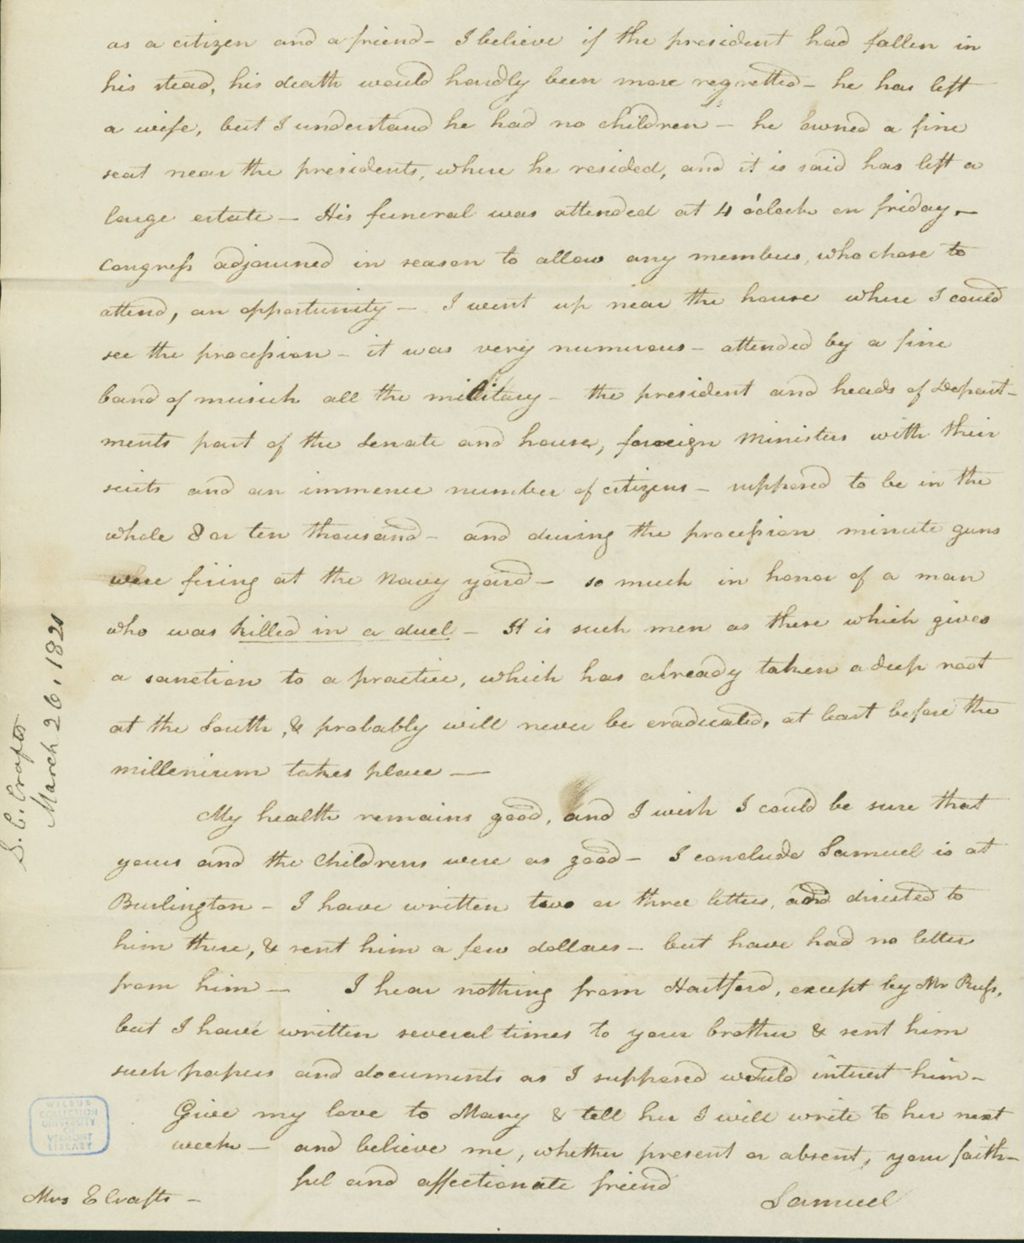 as a citizen and a friend - I believe if the president had fallen in
his stead, his death would hardly been more regretted - he has left
a wife, but I understand he had no children - he owned a fine
seat near the presidents, where he resided, and it is said has left a
large estate - His funeral was attended at 4 o'clock on friday, -
Congress adjourned in season to allow any members, who chose to
attend, an opportunity - I went up near the house where I could
see the procession - it was very numerous - attended by a fine
band of musick all the military - the president and heads of Depart-
ments part of the Senate and house, foreign Ministers with their
suits and an immence number of citizens - supposed to be in the
whole 8 or ten thousand - and during the procession minute guns
were firing at the Navy yard - so much in honor of a man
who was killed in a duel - It is such men as these which gives
a sanction to a practice, which has already taken a deep root
at the South, & probably will never be eradicated, at least before the
millenium takes place -
My health remains good, and I wish I could be sure that
yours and the Childrens were as good - I conclude Samuel is at
Burlington - I have written two or three letters, and directed to
him there, & sent him a few dollars - but have had no letter
from him - I hear nothing from Hartford, except by Mr Russ,
but I have written several times to your brother & sent him
such papers and documents as I supposed would interest him -
Give my love to Mary & tell her I will write to her next
week - and believe me, whether present or absent, your faith-
ful and affectionate friend
Samuel
Mrs E Crafts -
S. C. Crafts
March 26, 1820
WILBUR
COLLECTION
UNIVERSITY
OF
VERMONT
LIBRARY